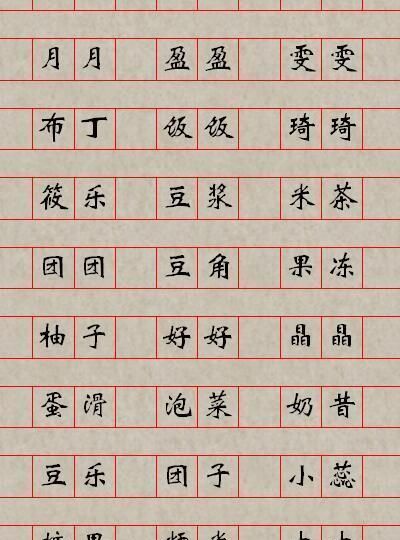 月月 盈盈 雯雯
布丁 饭饭 琦琦
筱乐 豆浆 米茶
团团 豆角 果冻
柚子 好好 晶晶
蛋滑 泡菜 奶昔
豆乐 团子 小蕊